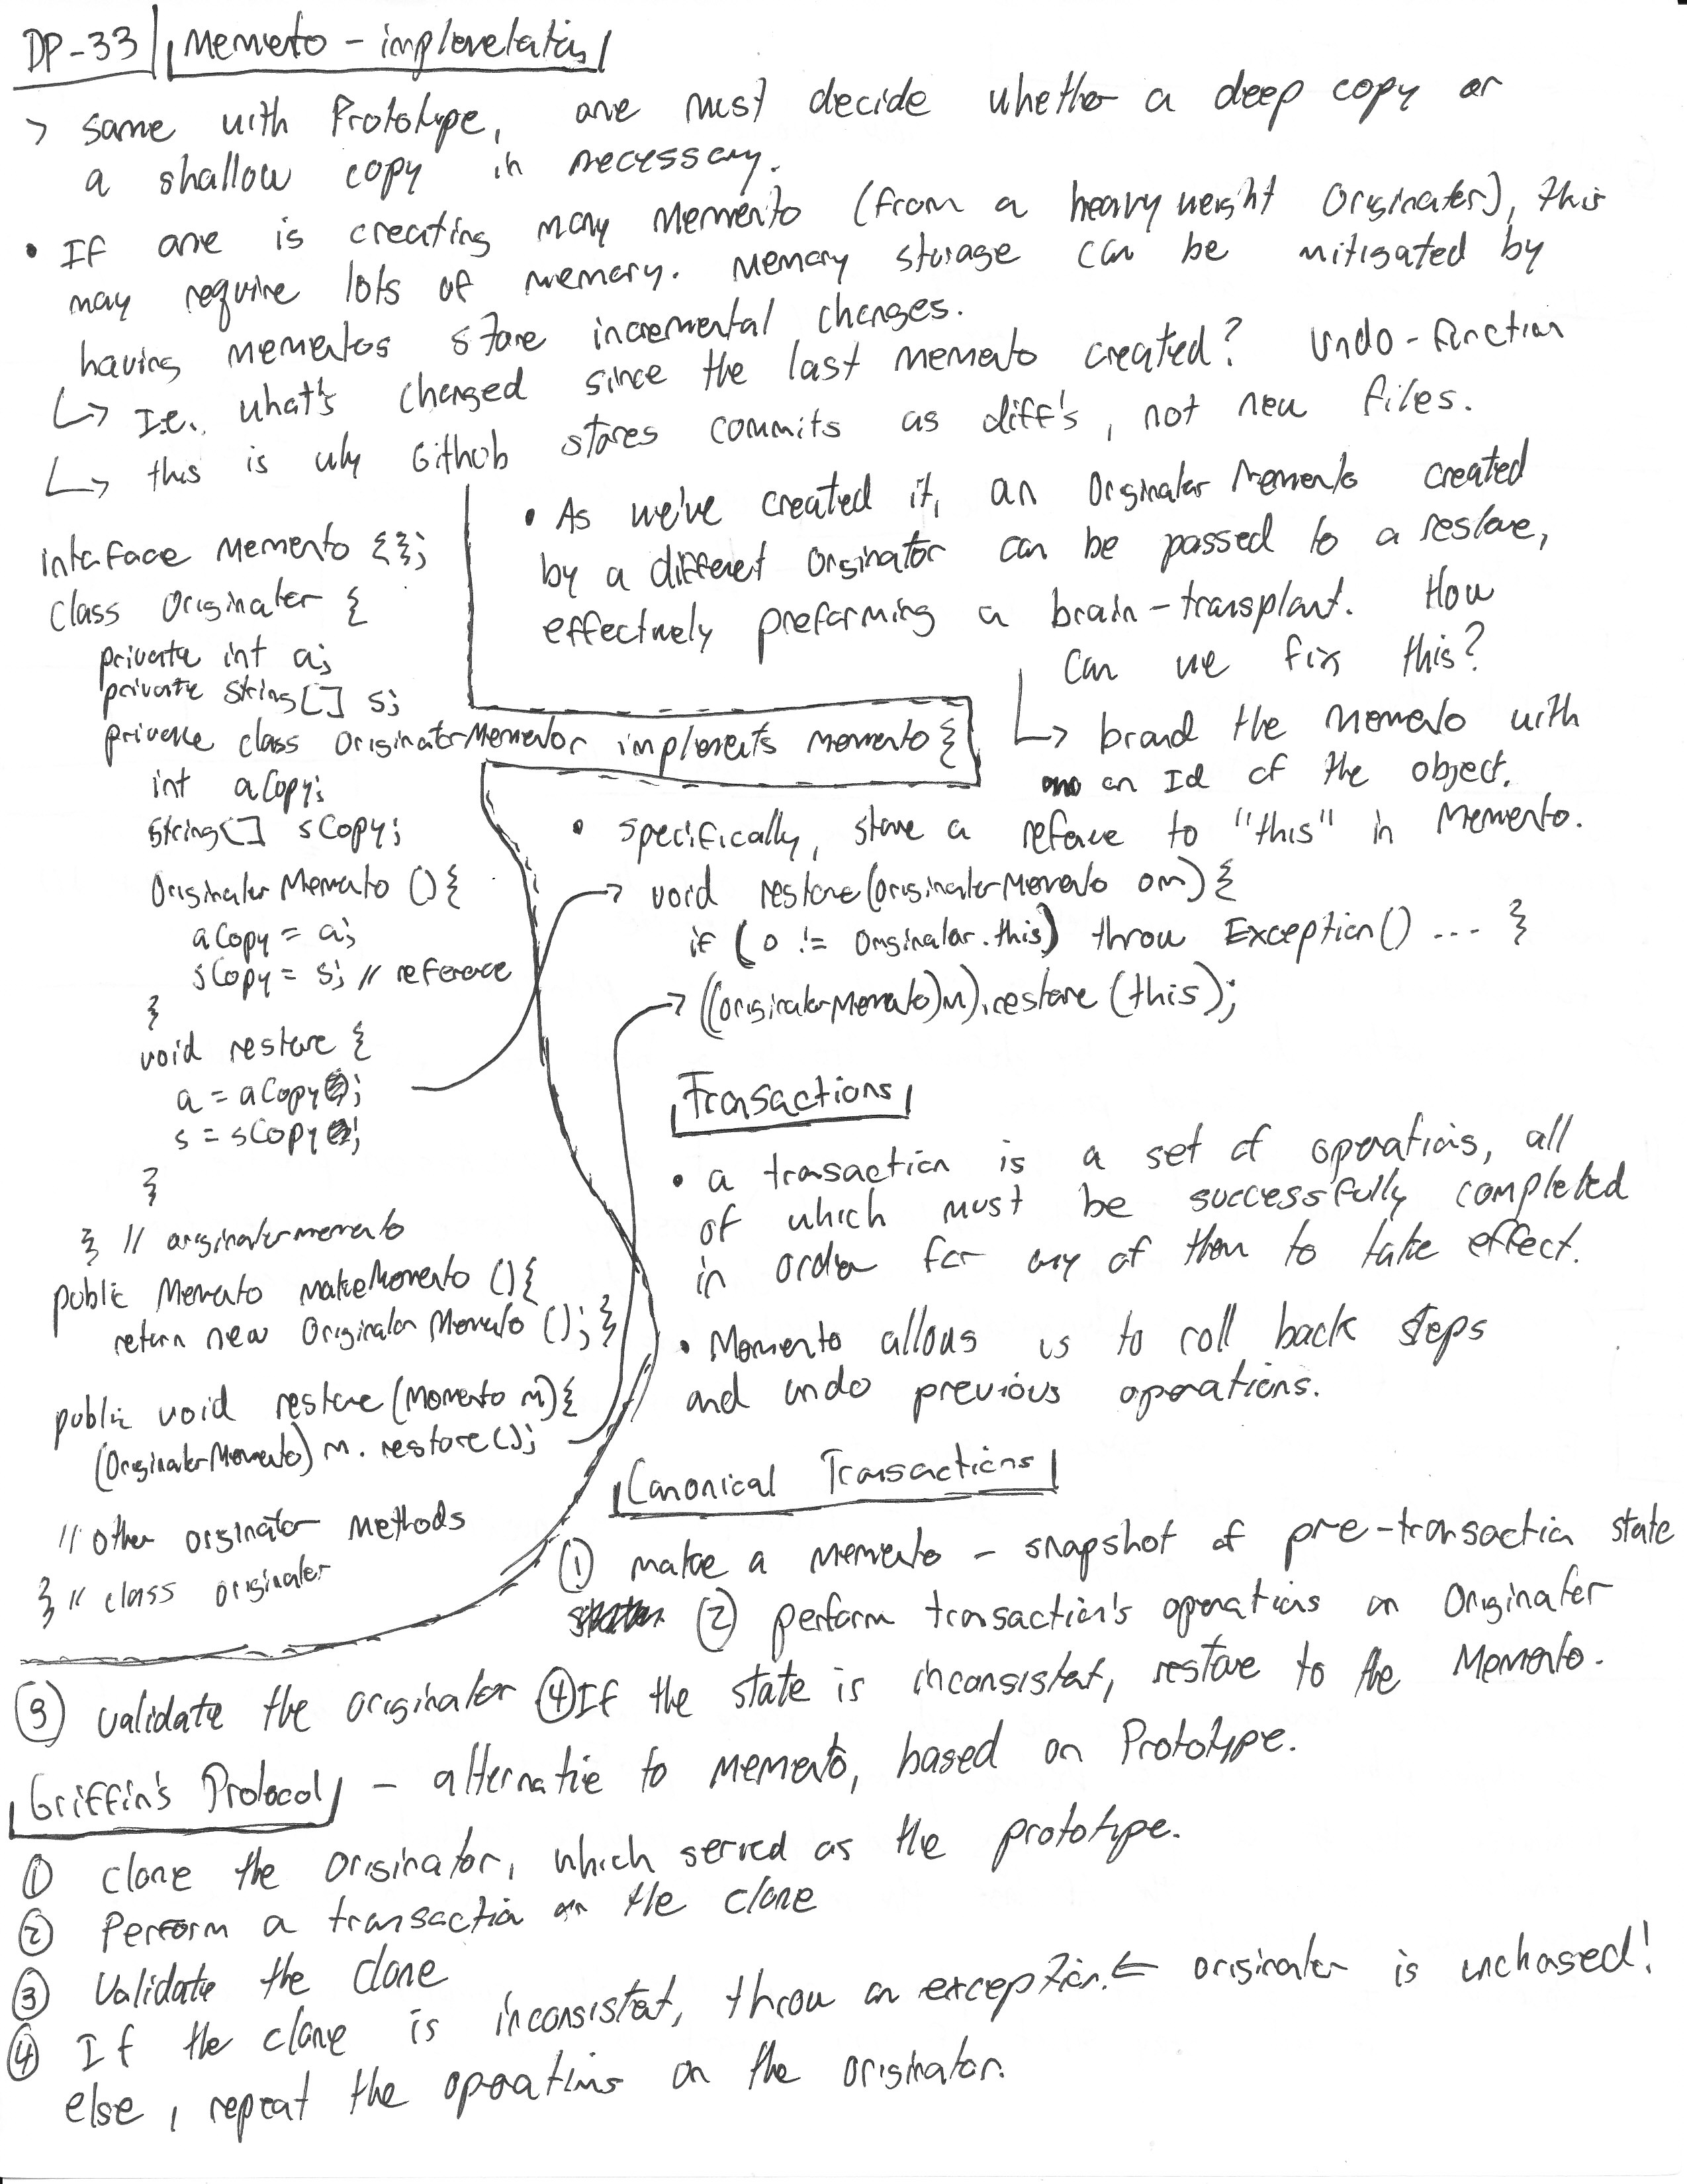 DP-33 Memento - implementation
> same with Prototype, one must decide whether a deep copy or
a shallow copy in necessary.
• If one is creating many Memento (from a heavyweight Originator), this
may require lots of memory. Memory storage can be mitigated by
having mementos store incremental changes.
↳ I.e., what's changed since the last memento created? Undo-function
↳ this is why Github stores commits as diff's, not new files.
interface Memento {};
class Originator {
private int a;
private String[] s;
private class OriginatorMementor implements Memento {
int aCopy;
String[] sCopy;
OriginatorMemento () {
aCopy = a;
sCopy = s; // reference
}
void restore {
a = aCopy;
s = sCopy;
}
} // originatormemento
public Memento makeMomento () {
return new OriginatorMemento (); }
public void restore (Momento m) {
(OriginatorMomento) m. restore();
// other originator methods
} // class originator
• As we've created it, an Originator Memento created
by a different Orginator can be passed to a restore,
effectively preforming a brain-transplant. How
can we fix this?
↳ brand the Memento with
an Id of the object.
• specifically, store a reference to "this" in Memento.
→ void restore (OriginatorMemento om) {
if (o != Originator.this) throw Exception() ... }
→ ((OriginatorMemento)m).restore (this);
Transactions
• a transaction is a set of operations, all
of which must be successfully completed
in order for any of them to take effect.
• Momento allows us to roll back steps
and undo previous operations.
Canonical Transactions
① make a memento - snapshot of pre-transaction state
② perform transaction's operations on Originator
③ validate the originator ④ If the state is inconsistent, restore to the Memento.
Griffin's Protocol - alternative to memento, based on Prototype.
① clone the originator, which served as the prototype.
② Perform a transaction on the clone
③ Validate the clone
④ If the clone is inconsistent, throw an exception. ← originator is unchanged!
else, repeat the operations on the originator.